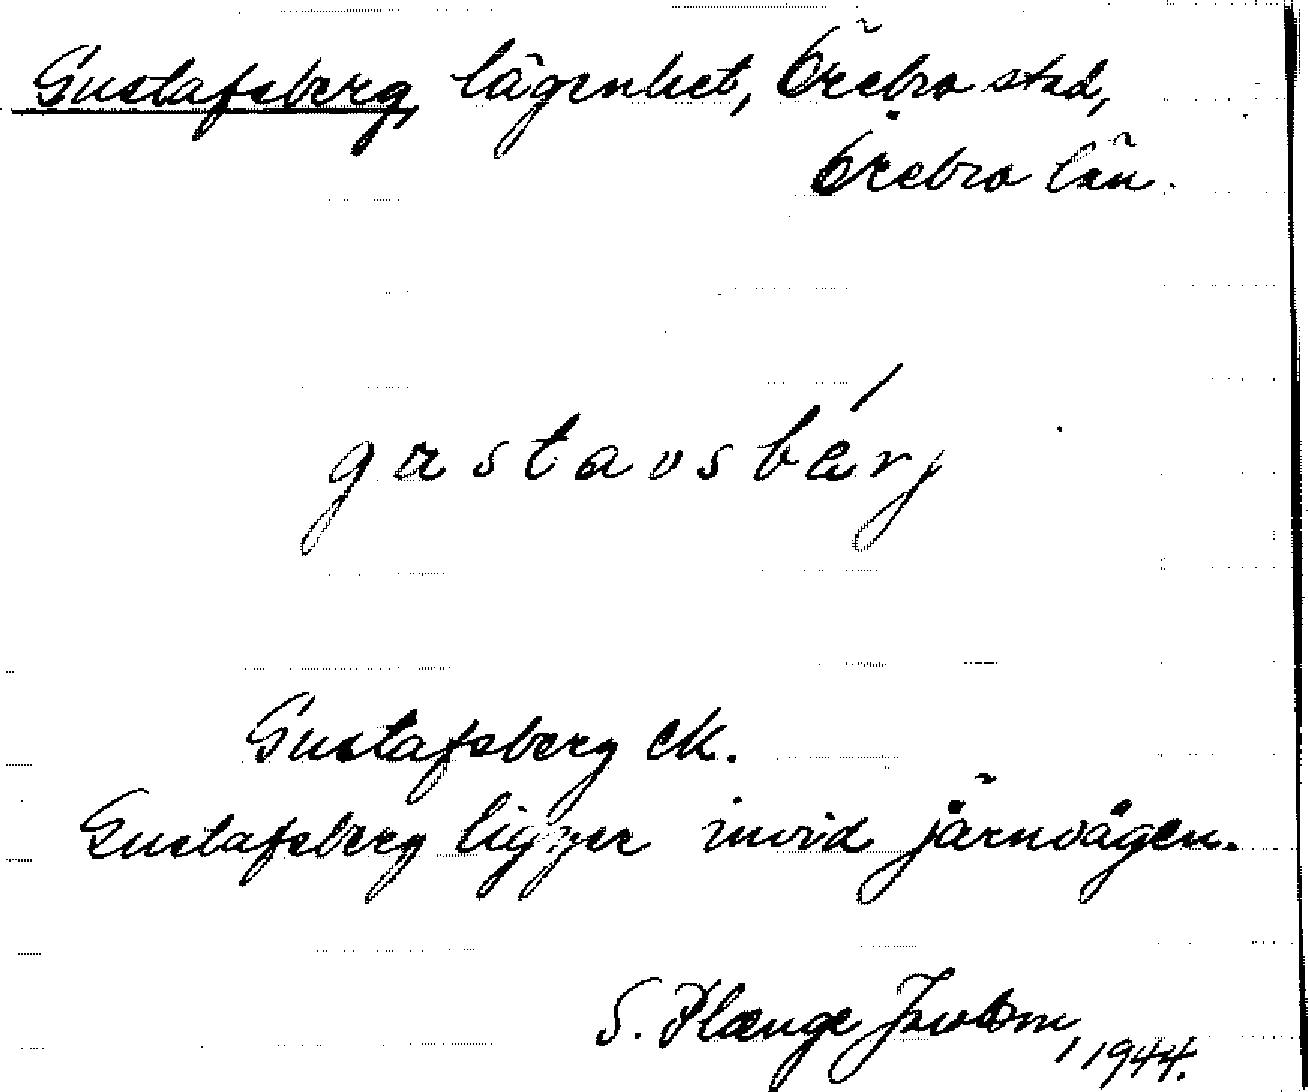 Gustafsberg, lägenhet, Örebro stad,
Örebro län.
gustavsbärj
Gustafsberg ek.
Gustafsberg ligger invid järnvägen.
S. Jacobson, 1944.